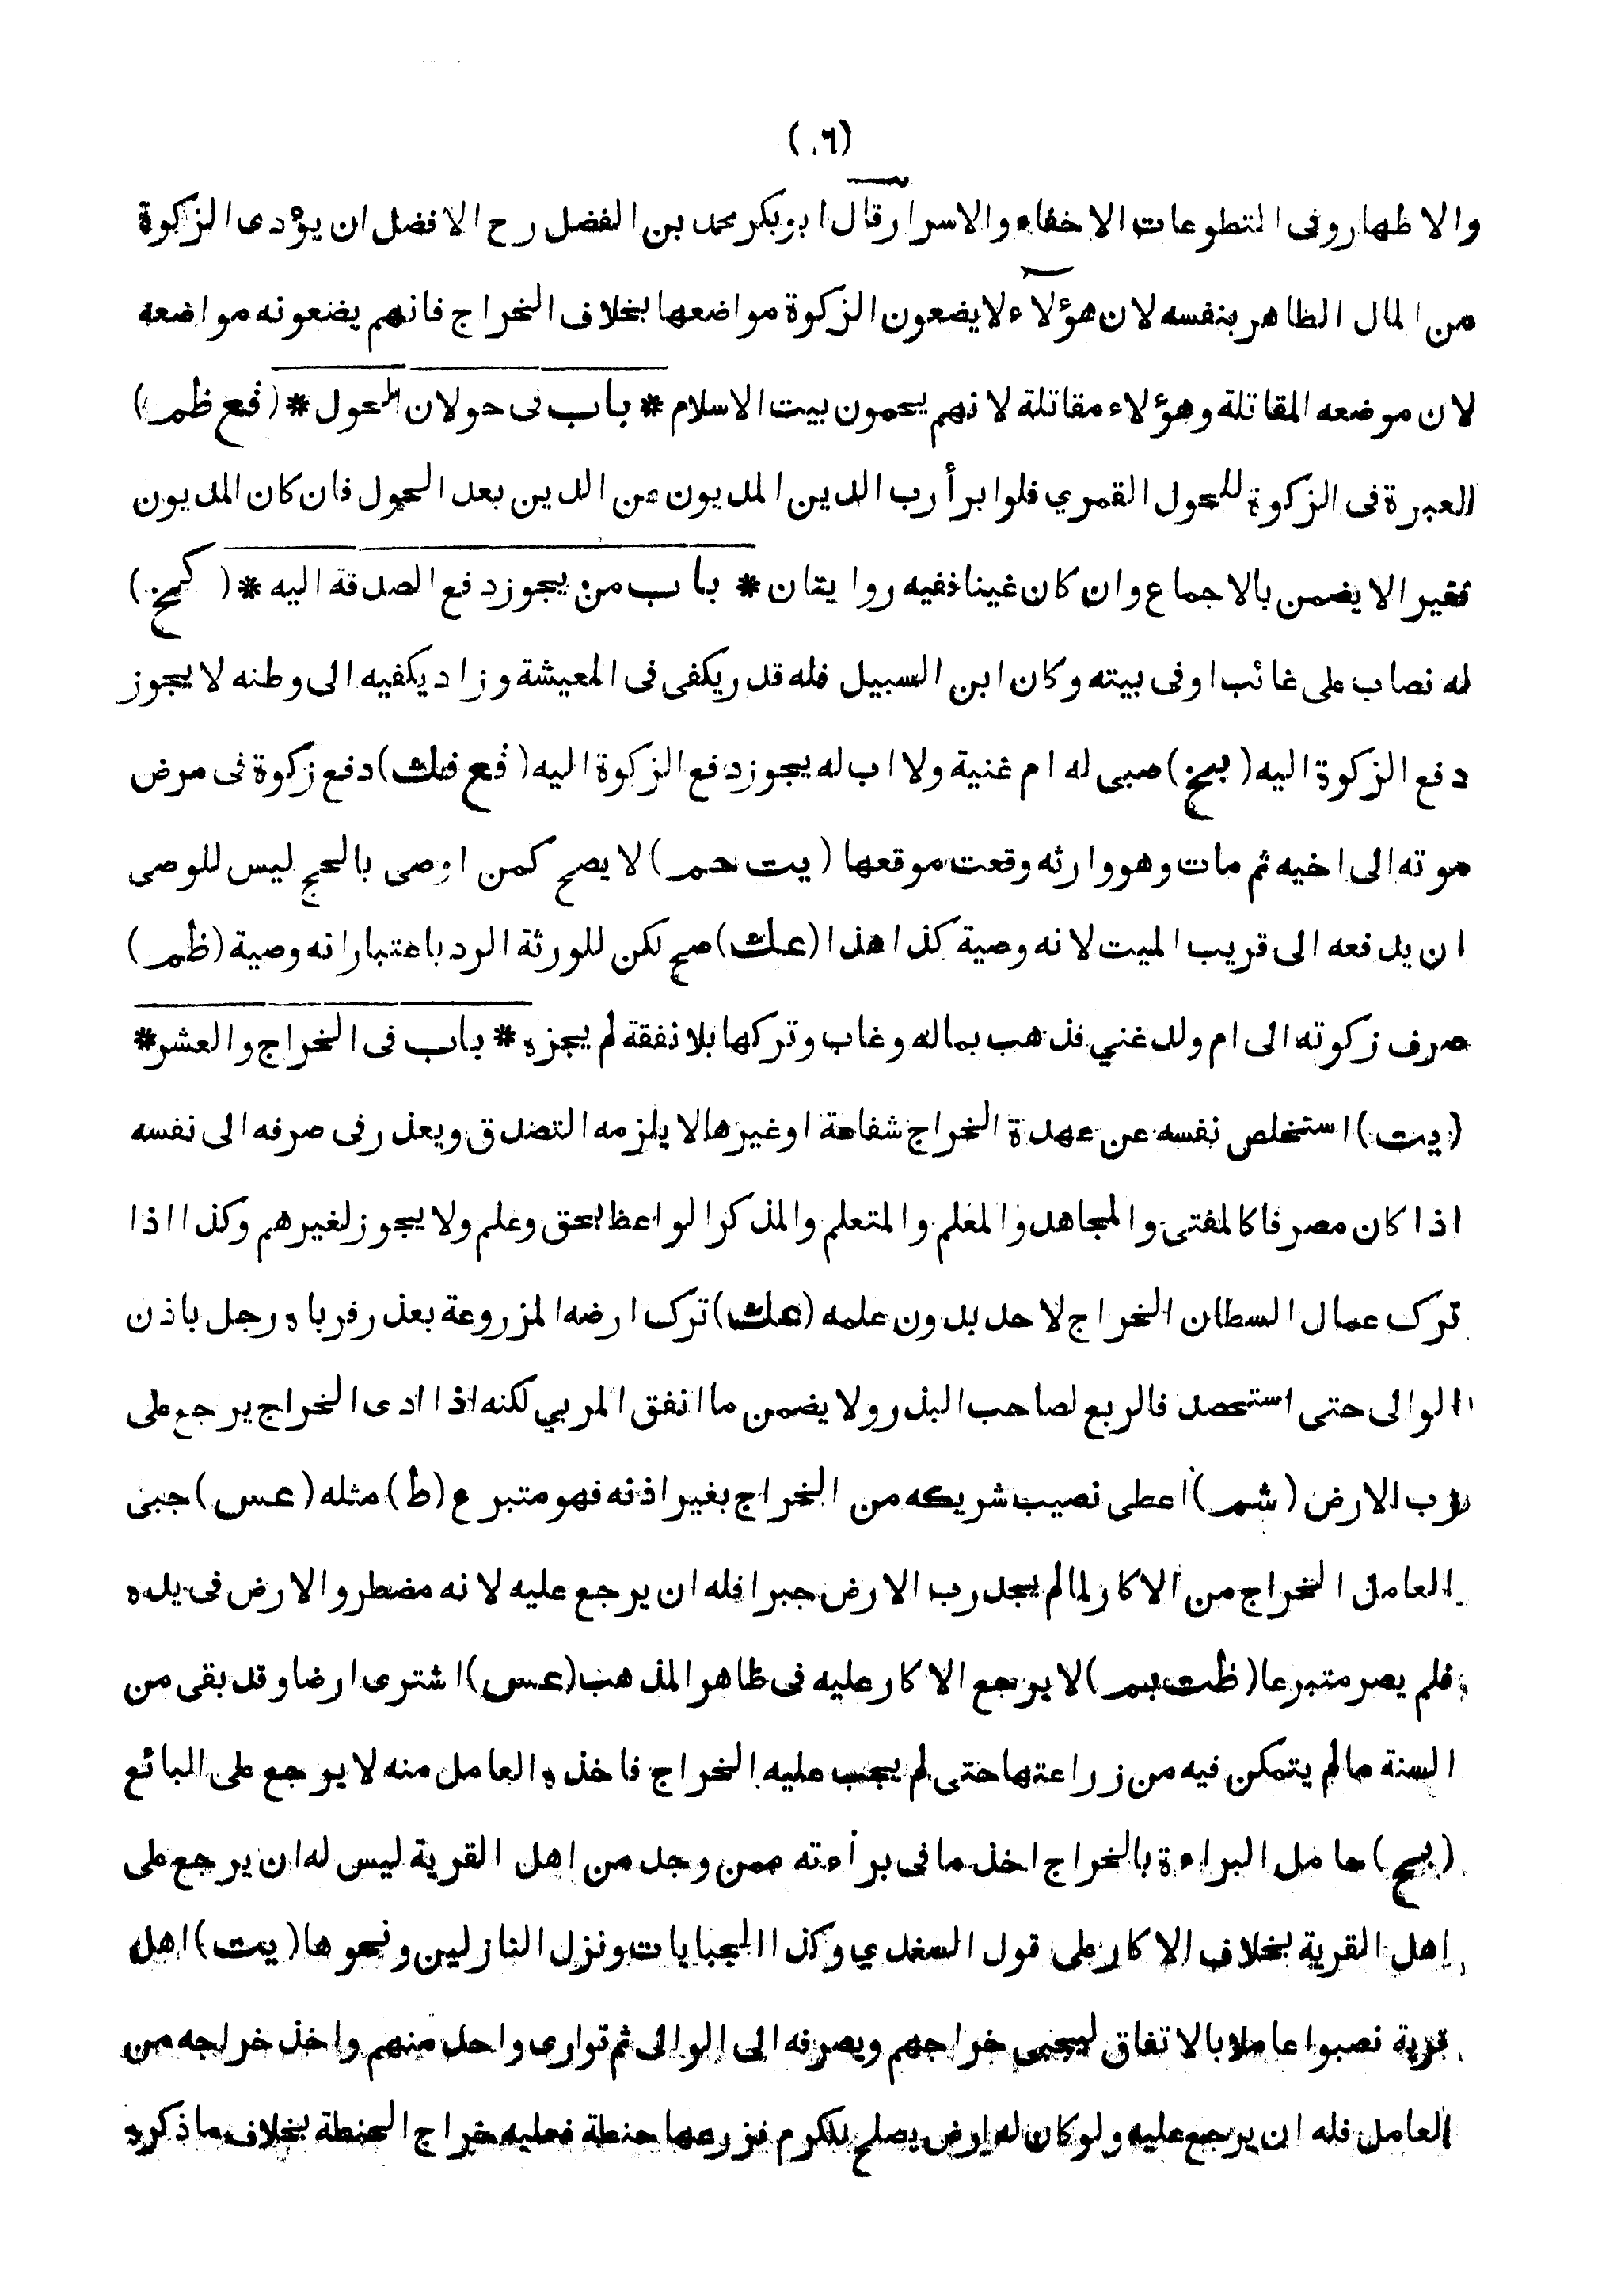 (٦٠)
والاظهار وفى التطوعات الاخفاء والاسرار قال ابوبكر محمد بن الفضل رح الافضل ان يؤدى الزكوة
من المال الظاهر بنفسه لان هؤلاء لا يضعون الزكوة مواضعها بخلاف الخراج فانهم يضعونه مواضعه
لان موضعه المقاتلة وهؤلاء مقاتلة لانهم يحمون بيت الاسلام * باب فى حولان الحول * (فع ظم)
العبرة فى الزكوة للحول القمري فلو ابرأ رب الدين المديون عن الدين بعد الحول فان كان المديون
فقيرا لا يضمن بالاجماع وان كان غنيا ففيه روايتان * باب من يجوز دفع الصدقة اليه * (كبخ)
له نصاب على غائب اوفى بيته وكان ابن السبيل فله قدر يكفى فى المعيشة وزاد يكفيه الى وطنه لا يجوز
دفع الزكوة اليه (بخ) صبى له ام غنية ولا اب له يجوز دفع الزكوة اليه (فع فك) دفع زكوة فى مرض
موته الى اخيه ثم مات وهو وارثه وقعت موقعها (يت حم) لا يصح كمن اوصى بالحج ليس للوصى
ان يدفعه الى قريب الميت لانه وصية كذا هذا (عك) صح لكن للورثة الرد باعتبار انه وصية (ظم)
صرف زكوته الى ام ولد غني فذهب بماله وغاب وتركها بلا نفقة لم يجزه * باب فى الخراج والعشر *
(يت) استخلص نفسه عن عهدة الخراج شفاعة او غيرها لا يلزمه التصدق ويعذر فى صرفه الى نفسه
اذا كان مصرفا كالمفتى والمجاهد والمعلم والمتعلم والمذكر الواعظ بحق وعلم ولا يجوز لغيرهم وكذا اذا
ترك عمال السطان الخراج لاحد بدون علمه (عك) ترك ارضه المزروعة بعذر فرباه رجل باذن
الوالى حتى استحصد فالربع لصاحب البذر ولا يضمن ما انفق المربي لكنه اذا ادى الخراج يرجع على
رب الارض (شم) اعطى نصيب شريكه من الخراج بغير اذنه فهو متبرع (ط) مثله (عس) جبى
العامل الخراج من الاكار لما لم يجد رب الارض جبرا فله ان يرجع عليه لانه مضطر والارض فى يده
فلم يصر متبرعا (ظت بم) لا يرجع الاكار عليه فى ظاهر المذهب (عس) اشترى ارضا وقد بقى من
السنة ما لم يتمكن فيه من زراعتها حتى لم يجب عليه الخراج فاخذه العامل منه لا يرجع على البائع
(بخ) حامل البراءة بالخراج اخذ ما فى براءته ممن وجد من اهل القرية ليس له ان يرجع على
اهل القرية بخلاف الاكار على قول السغدي وكذا الجبايات ونزل النازلين ونحوها (يت) اهل
قرية نصبوا عاملا بالاتفاق ليجبى خراجهم ويصرفه الى الوالى ثم توارى واحد منهم واخذ خراجه من
العامل فله ان يرجع عليه ولو كان له ارض يصلح للكرم فزرعها حنطة فعليه خراج الحنطة بخلاف ما ذكره